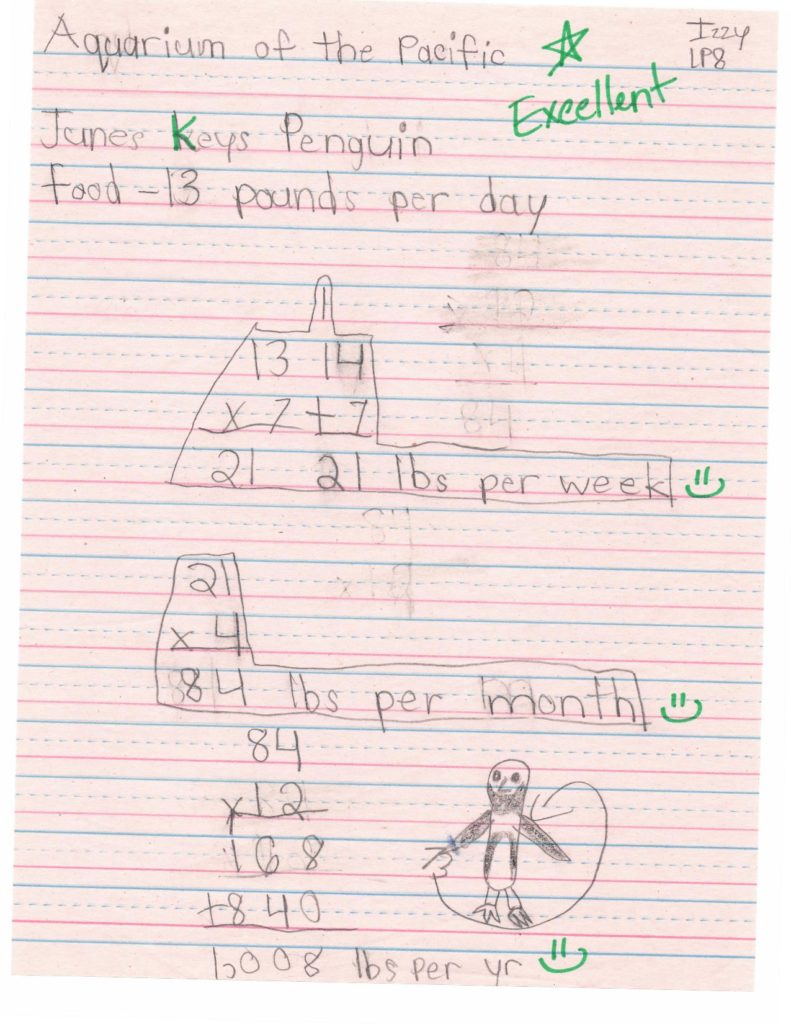 Aquarium of the Pacific
Izzy
LP8
Excellent
Junes Keys Penguin
food -13 pounds per day
1
13 14
x 7 + 7
21 21 lbs per week
21
x 4
84 lbs per month
84
x12
168
+840
1,008 lbs per yr